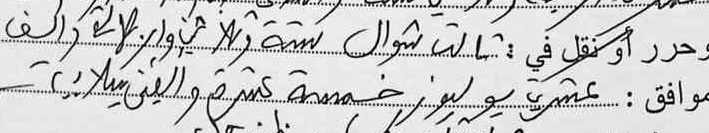 وحرر أو نقل في : ثالث شوال ستة وثلاثين وأربعمائة وألف
موافق : عشرين يوليوز خمسة عشرة وألفين ميلادية